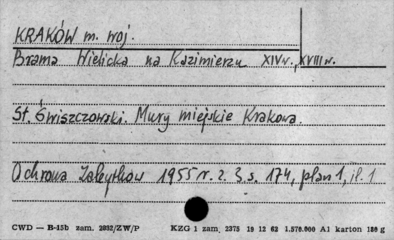 KRAKÓW m. woj.
Brama Wielicka na Kazimierzu XIV w., XVIII w.
St. Świszczowski. Mury miejskie Krakowa.
Ochrona Zabytków 1955 r. z. 3, s. 174, plan 1, il. 1
CWD — B-15b zam. 2032/ZW/P KZG 1 zam. 2375 19 12 62 1.570.000 A1 karton 180 g